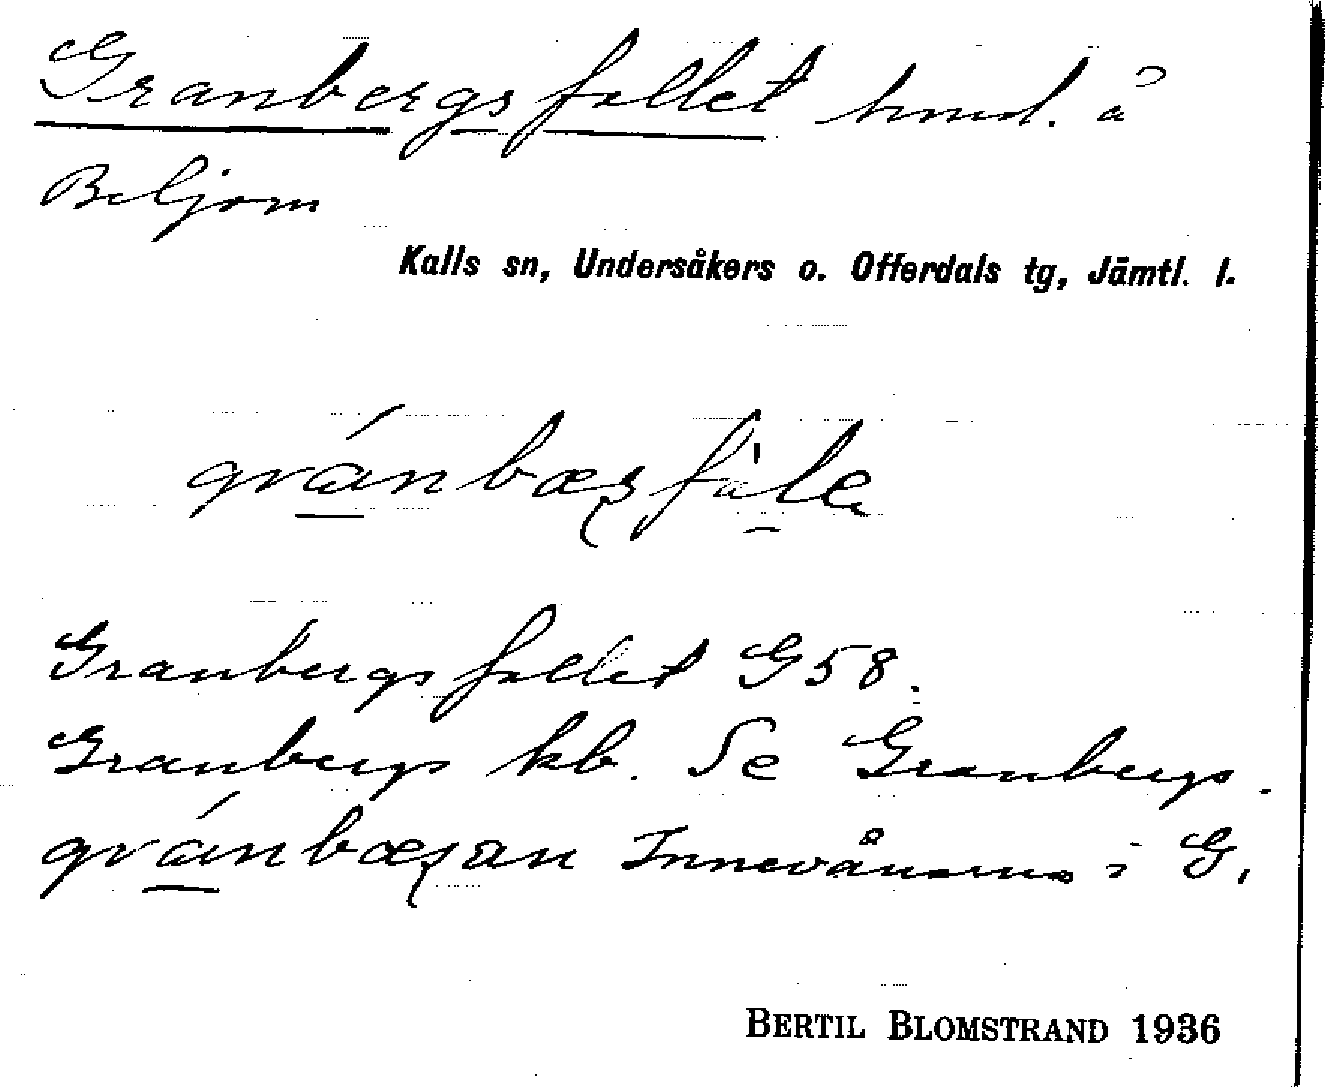 Granbergsfallet hmd. å
Beljom
Kalls sn, Undersåkers o. Offerdals tg, Jämtl. l.
gránbæsfàle
Granbergsfallet G58.
Granbergs kb. Se Granbergs.
gránbæsan Innevånarna i G.
BERTIL BLOMSTRAND 1936